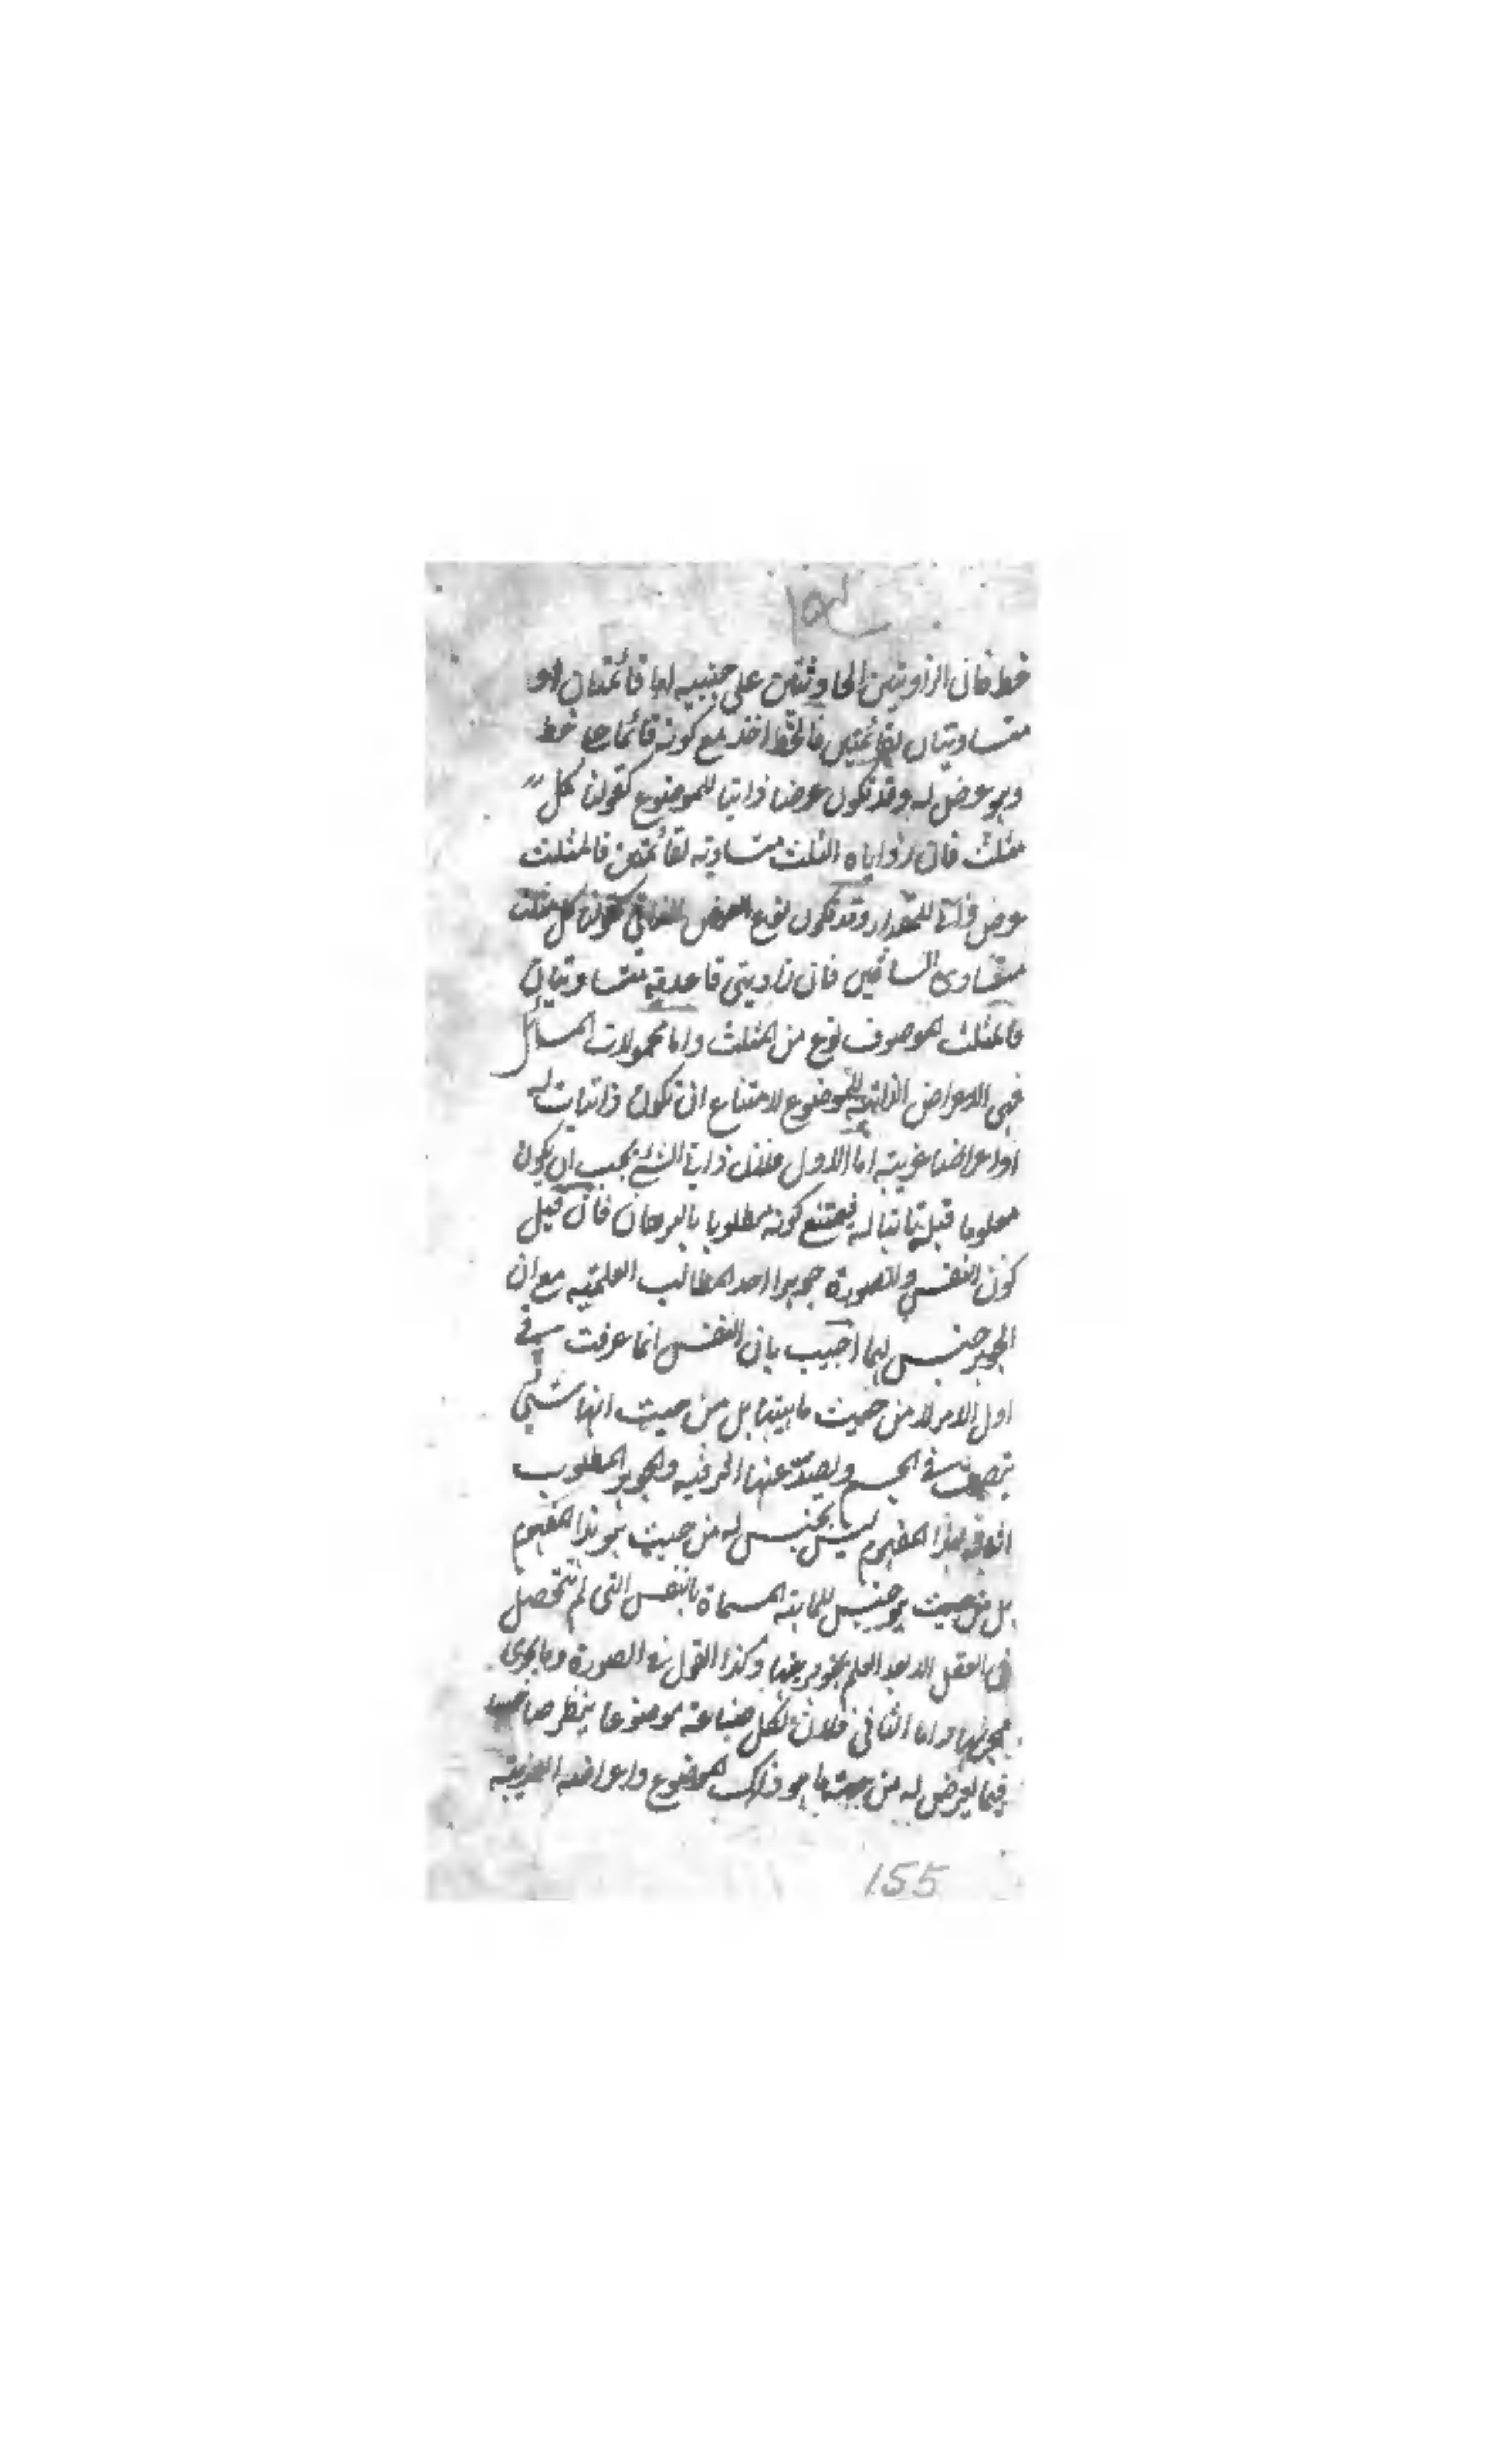 ١٥٥
خط فان الزاويتين الحادثتين على جنبيه اما قائمتان او
متساويتان لقائمتين فالخط اخذ مع كونه قائما على خط
وهو عرض له وقد تكون عرضا ذاتيا للموضوع كقولنا كل
مثلث فان زواياه الثلث متساوية لقائمتين فالمثلث
عرض ذاتي للمقدار وقد تكون نوع العرض الذاتي كقولنا كل مثلث
متساوى الساقين فان زاويتى قاعدته متساويتان
فالمثلث الموصوف نوع من المثلث واما محمولات المسائل
فهى الاعراض الذاتية للموضوع لامتناع ان تكون ذاتيات له
او اعراضا غريبة اما الاول فلان ذاتى الشئ يجب ان يكون
معلوما قبله ثابتا له فيمتنع كونه مطلوبا بالبرهان فان قيل
كون النفس والصورة جوهرا احد المطالب العلمية مع ان
الجوهر جنس لهما اجيب بان النفس انما عرفت فى
اول الامر لا من حيث ماهيتها بل من حيث انها شئ
يتصرف فى الجسم ويصدر عنها الحركة والجوهر المطلوب
لهذا المفهوم ليس بجنس له من حيث هو هذا المفهوم
بل من حيث هو جنس للماهية المسماة بالنفس التى لم تتحصل
فى العقل الا بعد العلم بجوهريتها وكذا القول فى الصورة وما يجرى
مجراها واما الثانى فلان لكل صناعة موضوعا ينظر صاحبها
فيما يعرض له من جهة ما هو ذلك الموضوع واعراضه الغريبة
155